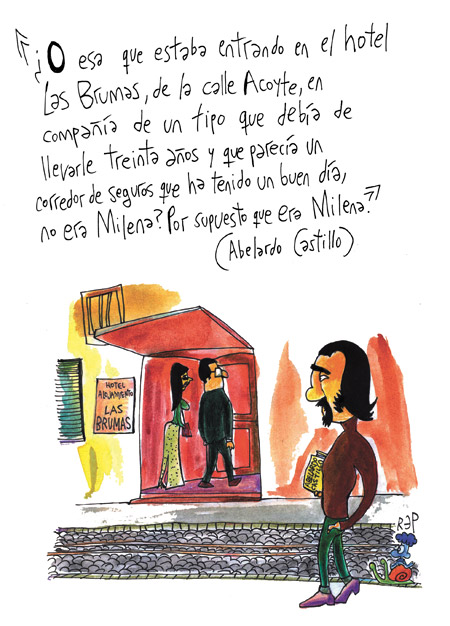 "¿O esa que estaba entrando en el hotel
Las Brumas, de la calle Acoyte, en
compañía de un tipo que debía de
llevarle treinta años y que parecía un
corredor de seguros que ha tenido un buen día,
no era Milena? Por supuesto que era Milena."
(Abelardo Castillo)
HOTEL
ALOJAMIENTO
LAS
BRUMAS
ABELARDO
CASTILLO
REP